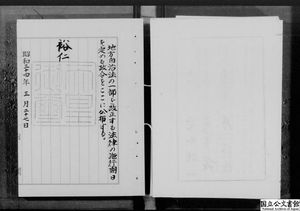 地方自治法の一部を改正する法律の施行期日
を定める政令をここに公布する。
裕仁
昭和三十四年三月二十七日
国立公文書館
National Archives of Japan